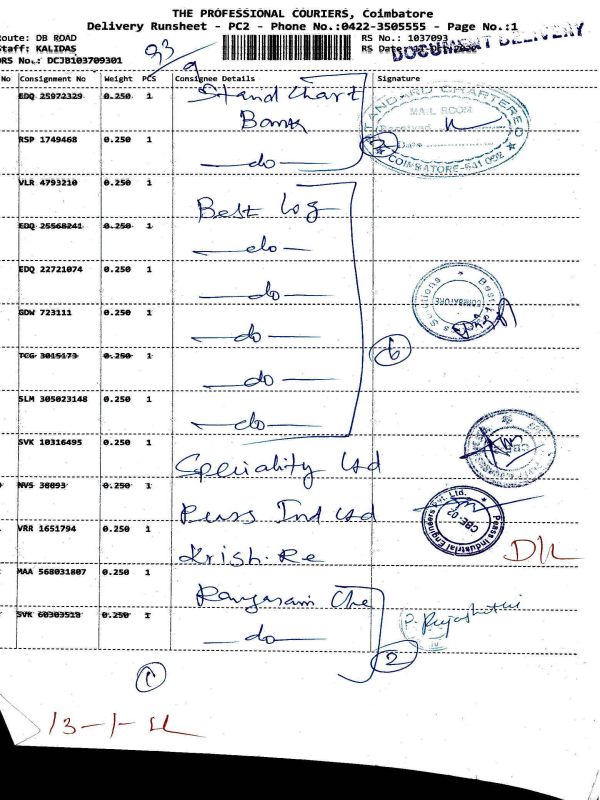 THE PROFESSIONAL COURIERS, Coimbatore
Delivery Runsheet - PC2 - Phone No.:0422-3505555 - Page No.:1
Route: DB ROAD
RS No.: 1037093
Staff: KALIDAS
RS Date:
DOCUMENT DELIVERY
DRS No.: DCJB103709301
93
9
No Consignment No Weight PCS Consignee Details Signature
EDQ 25972329 0.250 1 Stand Chart
Bank
STANDARD CHARTERED
MAIL ROOM
Received
Date
COIMBATORE-641 002
RSP 1749468 0.250 1 do
2
VLR 4793210 0.250 1 Best Log
EDQ 25568241 0.250 1 do
EDQ 22721074 0.250 1 do
COIMBATORE
GDW 723111 0.250 1 do
TCG 3015173 0.250 1 do
6
SLM 305023148 0.250 1 do
SVK 10316495 0.250 1 Speciality Ltd
NVS 38093 0.250 1 Peass Ind Ltd
Peass Industrial Engineers Pvt. Ltd.
CBE-02
VRR 1651794 0.250 1 Krish. Re
MAA 568031807 0.250 1
SVK 60303518 0.250 1 do
2
1